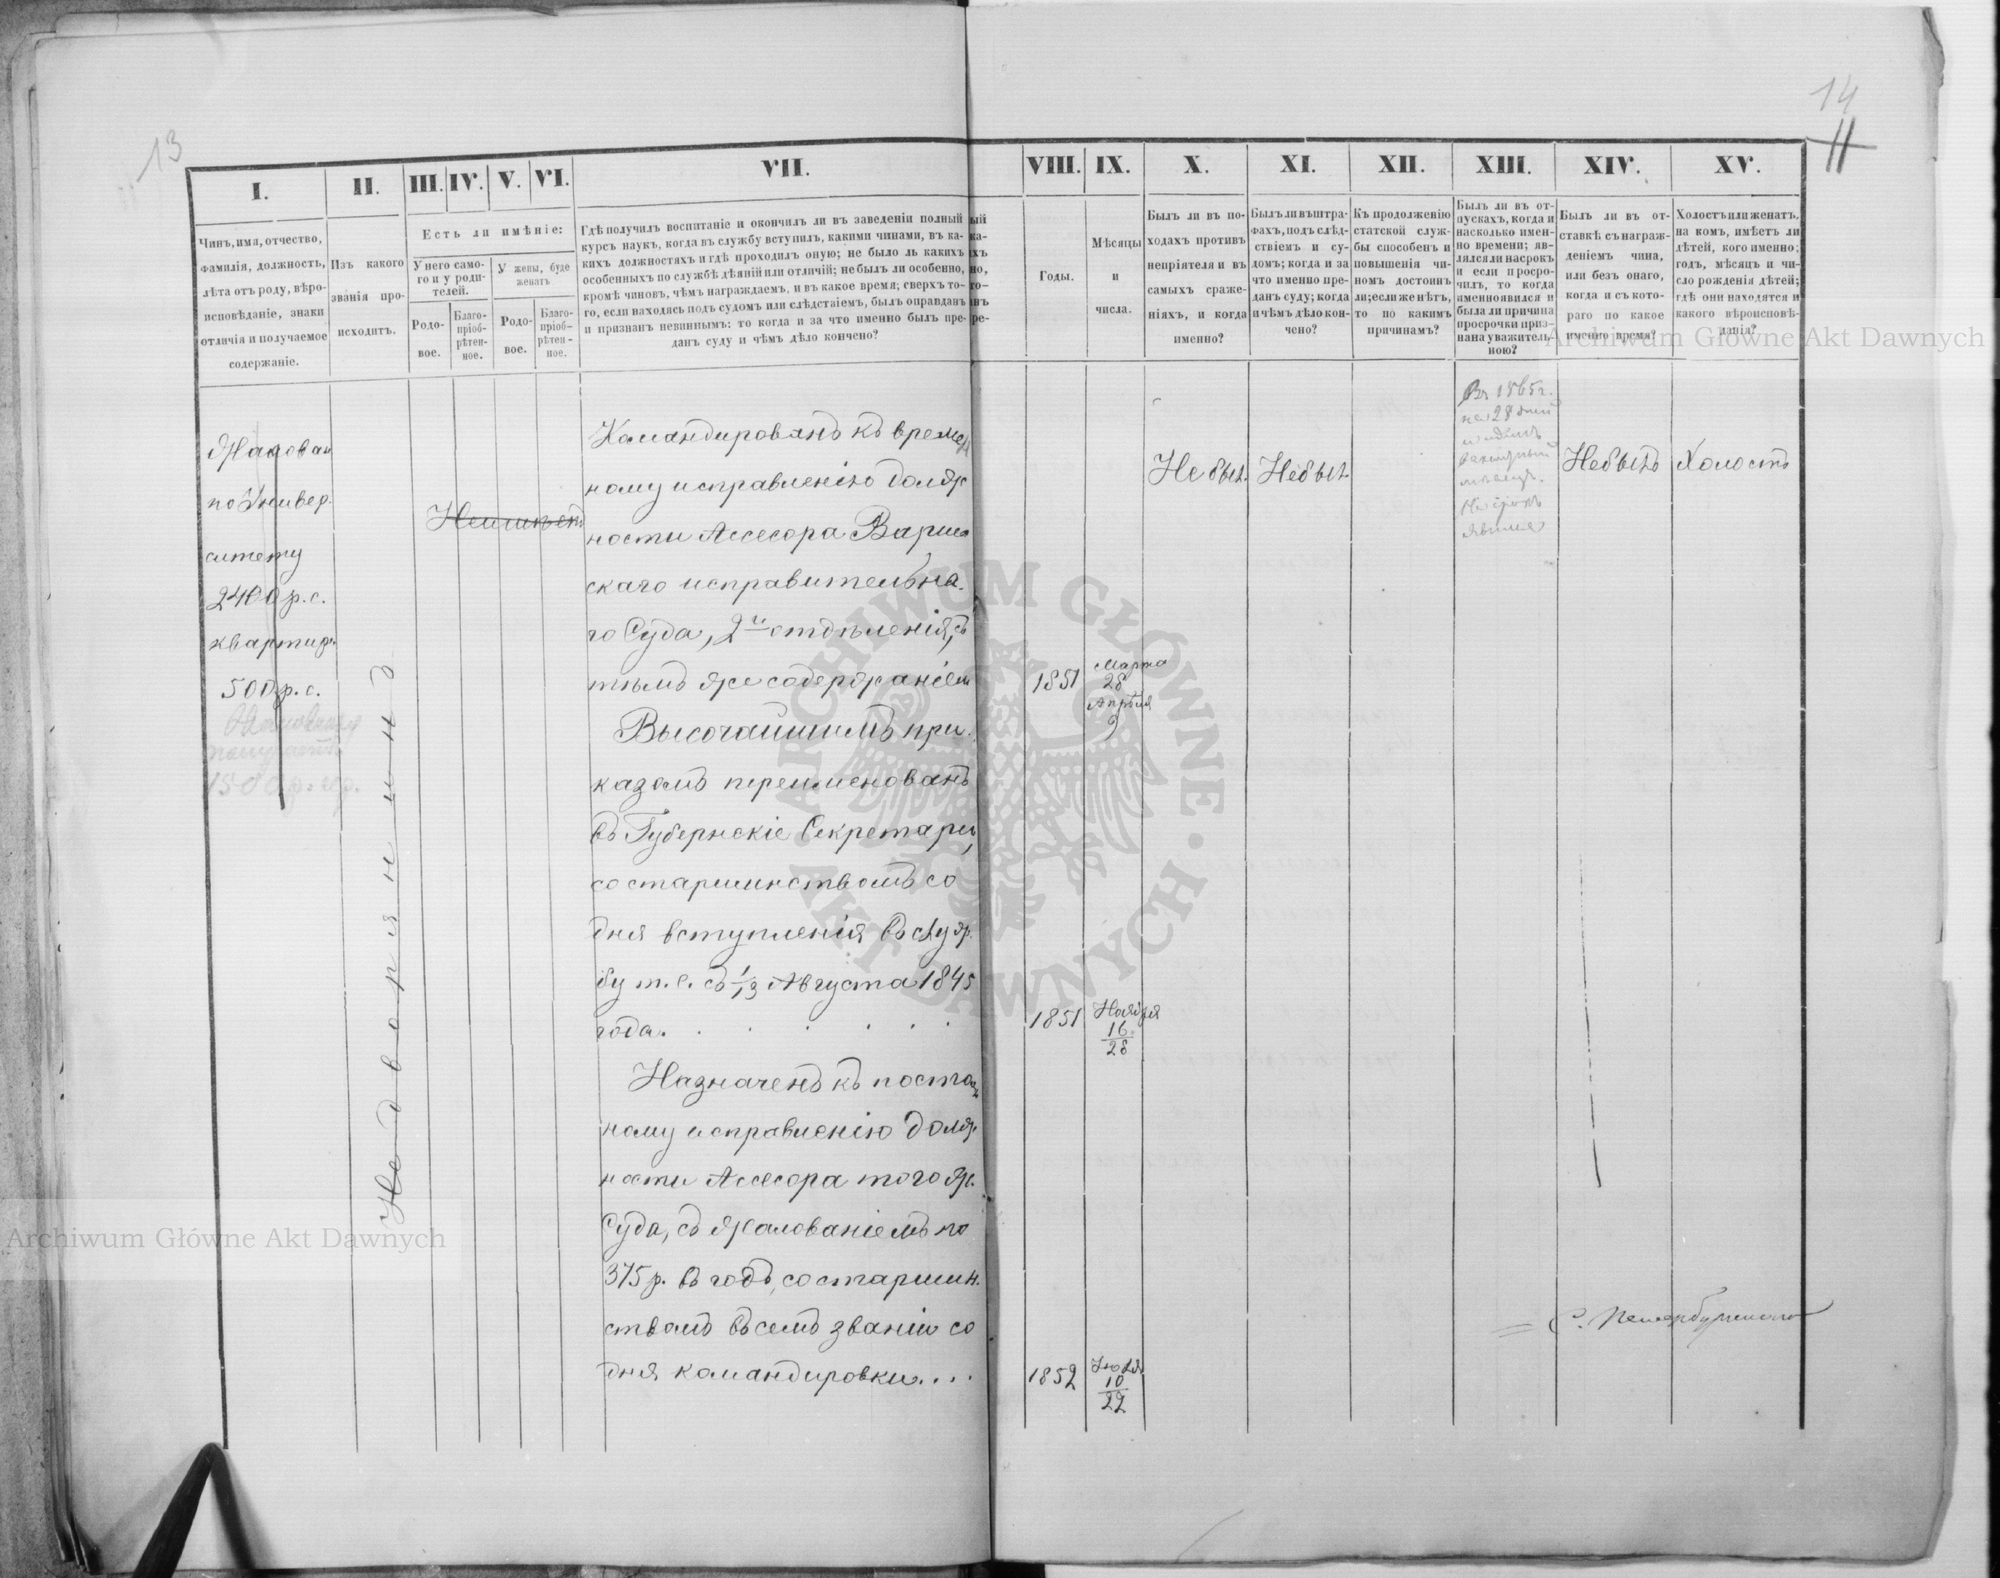 13
14
11
I.
II.
III.
IV.
V.
VI.
VII.
VIII.
IX.
X.
XI.
XII.
XIII.
XIV.
XV.
Чинъ, имя, отчество,
фамилія, должность,
лѣта отъ роду, вѣро-
исповѣданіе, знаки
отличія и получаемое
содержаніе.
Изъ какого
званія про-
исходитъ.
Есть ли имѣніе:
У него само-
го и у роди-
телей.
У жены, буде
женатъ
Родо-
вое.
Благо-
пріоб-
рѣтен-
ное.
Родо-
вое.
Благо-
пріоб-
рѣтен-
ное.
Гдѣ получилъ воспитаніе и окончилъ ли въ заведеніи полный
курсъ наукъ, когда въ службу вступилъ, какими чинами, въ ка-
кихъ должностяхъ и гдѣ проходилъ оную; не было ль какихъ
особенныхъ по службѣ дѣяній или отличій; не былъ ли особенно,
кромѣ чиновъ, чѣмъ награждаемъ, и въ какое время; сверхъ то-
го, если находясь подъ судомъ или слѣдствіемъ, былъ оправданъ
и признанъ невиннымъ: то когда и за что именно былъ пре-
данъ суду и чѣмъ дѣло кончено?
Годы.
Мѣсяцы
и
числа.
Былъ ли въ по-
ходахъ противъ
непріятеля и въ
самыхъ сраже-
ніяхъ, и когда
именно?
Былъ ли въ штра-
фахъ, подъ слѣд-
ствіемъ и су-
домъ; когда и за
что именно пре-
данъ суду; когда
и чѣмъ дѣло кон-
чено?
Къ продолженію
статской служ-
бы способенъ и
повышенія чи-
номъ достоинъ
ли; если же нѣтъ,
то по какимъ
причинамъ?
Былъ ли въ от-
пускахъ, когда и
насколько имен-
но времени; яв-
лялся ли на срокъ
и если просро-
чилъ, то когда
именно явился и
была ли причина
просрочки приз-
нана уважитель-
ною?
Былъ ли въ от-
ставкѣ съ награж-
деніемъ чина,
или безъ онаго,
когда и съ кото-
раго по какое
именно время?
Холостъ или женатъ,
на комъ, имѣетъ ли
дѣтей, кого именно;
годъ, мѣсяцъ и чи-
сло рожденія дѣтей;
гдѣ они находятся и
какого вѣроисповѣ-
данія?
Жалован
по Универ.
ситету
2400 р. с.
квартир.
500 р. с.
1500 р. ср.
Недворянинъ
Неимѣетъ
Командированъ къ времен
ному исправленію долж
ности Ассесора Варша
скаго исправительна.
го Суда, 2го отдѣленія, съ
тѣмъ же содержаніем
1851
Марта
28
Апрѣля
9
Высочайшимъ при.
казомъ переименованъ
въ Губернскіе Секретари,
со старшинствомъ со
дня вступленія въ служ.
бу т. е. съ 1/13 Августа 1845
года. . . . . . .
1851
Ноября
16
28
Назначенъ къ постоян
ному исправленію долж.
ности Ассесора того же.
Суда, съ жалованіемъ по
375 р. въ годъ, со старшин.
ствомъ въ семъ званіи со
дня командировки. . . .
1852
Іюля
10
22
Не былъ
Небылъ
Въ 1865 г.
на 28 дней
вакатный
мѣсяцъ.
На срокъ
явился
Небылъ
Холостъ
С. Петербургскаго
Archiwum Główne Akt Dawnych
Archiwum Główne Akt Dawnych
ARCHIWUM GŁÓWNE · AKT DAWNYCH ·